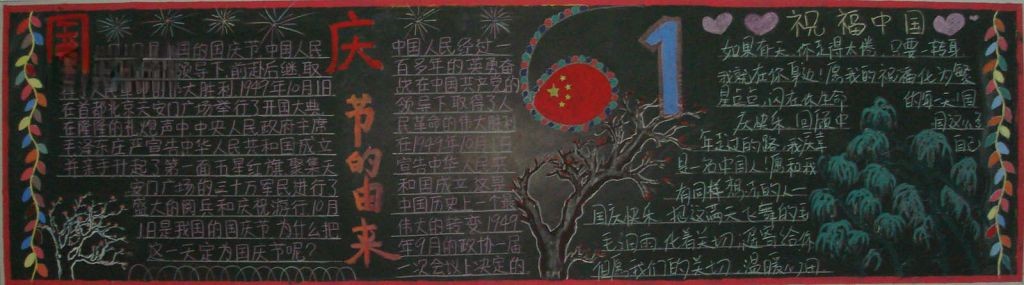 国庆节的由来
国的国庆节中国人民
领导下前赴后继取
大胜利1949年10月1日
在首都北京天安门广场举行了开国大典
在隆隆的礼炮声中中央人民政府主席
毛泽东庄严宣告中华人民共和国成立
并亲手升起了第一面五星红旗聚集天
安门广场的三十万军民进行了
盛大的阅兵和庆祝游行10月
1日是我国的国庆节为什么把
这一天定为国庆节呢?
中国人民经过一
百多年的英勇奋
战在中国共产党的
领导下取得了人
民革命的伟大胜利
在1949年10月1日
宣告中华人民共
和国成立这是
中国历史上一个最
伟大的转变1949
年9月的政协一届
一次会议上决定的
1
祝福中国
如果有天你走得太倦只要一转身
我就在你身边!愿我的祝福化为繁
星点点闪在你生命的每一天!国
庆快乐
年走过的路我庆幸自己
是一名中国人!愿和我
有同样想法的人一
国庆快乐把这满天飞舞的毛
毛细雨化着关切遥寄给你
但愿我们的关切温暖心间